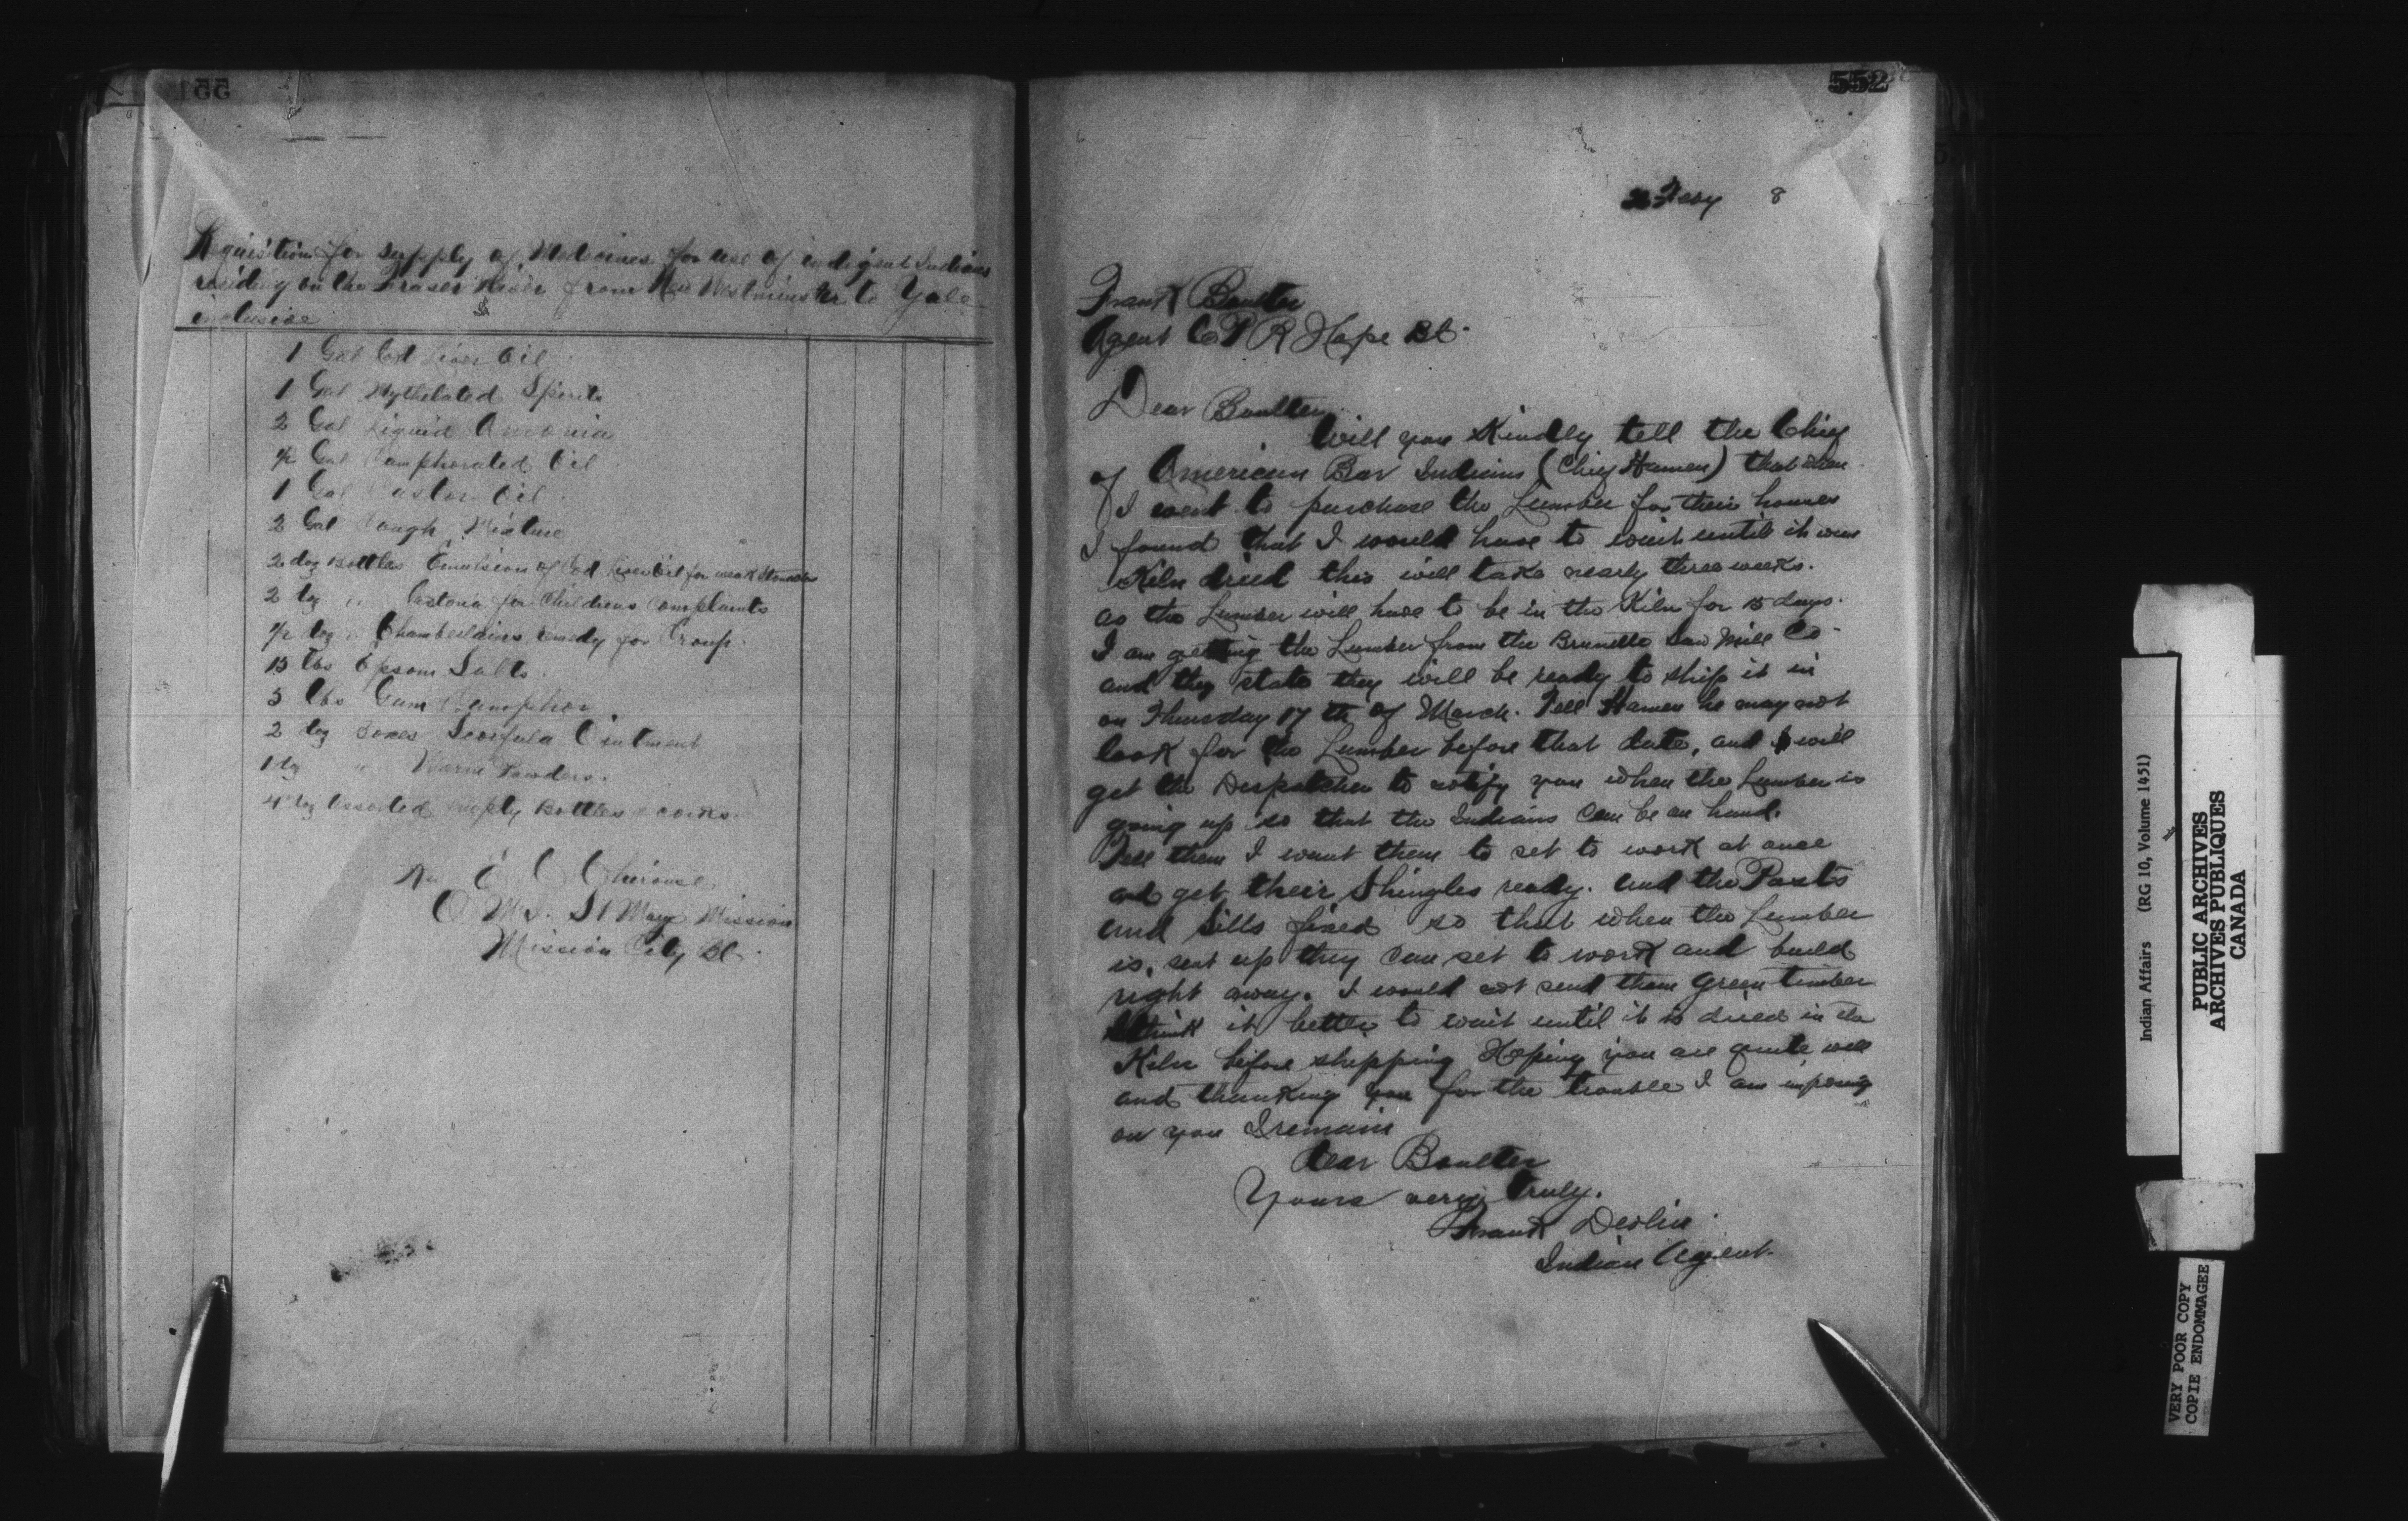 551
Requisition for supply of Medecines for use of indigent Indians
residing on the Fraser River from New Westminster to Yale
inclusive
1 Gal Cod Liver Oil
1 Gal Mythelated Spirits
2 Gal Liquid Amonia
1/2 Gal Camphorated Oil
1 Gal Castor Oil
2 Gal Cough Mixture
2 doz Bottles Emulsion of Cod Liver Oil for weak
2 doz " Castoria for Childrens Complaints
1/2 doz " Chamberlains Remedy for Croup
15 lbs Epsom Salts
5 lbs Gum Camphor
2 doz Boxes Scrofula Ointment
1 doz " Worm Powders.
4 doz Assorted empty Bottles & corks.
Rev E C Chirouse
O M I. St Marys Mission
Mission City BC.
552
Feby 8
Frank Boulter
Agent C P R Hope BC.
Dear Boulter
Will you Kindly tell the Chief
of American Bar Indians (Chief Hamen) that when
I went to purchase the Lumber for their houses
I found that I would have to wait until it was
Kiln dried this will take nearly three weeks.
as the Lumber will have to be in the Kiln for 15 days.
I am getting the Lumber from the Brunette Saw Mill Co
and they state they will be ready to ship it in
on Thursday 17 th of March. Tell Hamen he may not
look for the Lumber before that date, and I will
get the Despatcher to notify you when the Lumber is
going up so that the Indians can be on hand.
Tell them I want them to set to work at once
and get their Shingles ready. and the Posts
and Sills fixed so that when the Lumber
is sent up they can set to work and build
right away. I would not send them green timber
I think it better to wait until it is dried in the
Kiln before shipping Hoping you are quite well
and thanking you for the trouble I am imposing
on you I remain
Dear Boulter
Yours very truly.
Frank Devlin
Indian Agent.
Indian Affairs (RG 10, Volume 1451)
PUBLIC ARCHIVES
ARCHIVES PUBLIQUES
CANADA
VERY POOR COPY
COPIE ENDOMMAGEE